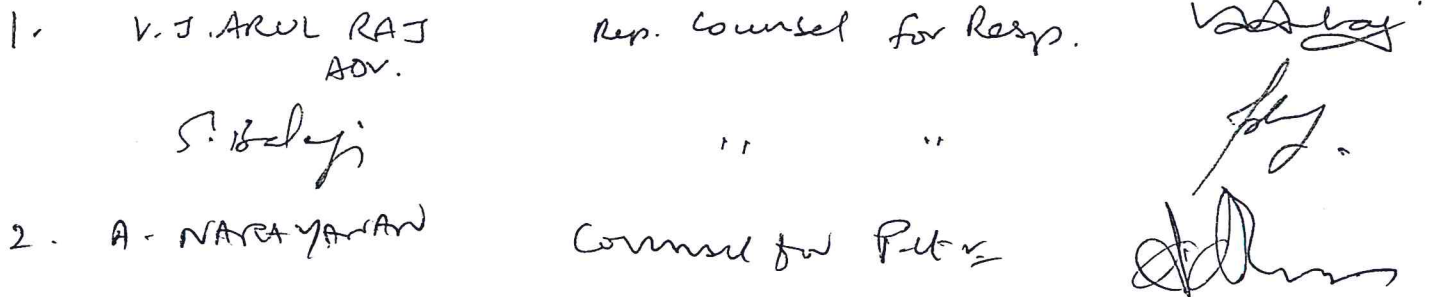 1. V. J. ARUL RAJ Rep. Counsel for Resp.
ADV.
S. Balaji " "
2. A. NARAYANAN Counsel for